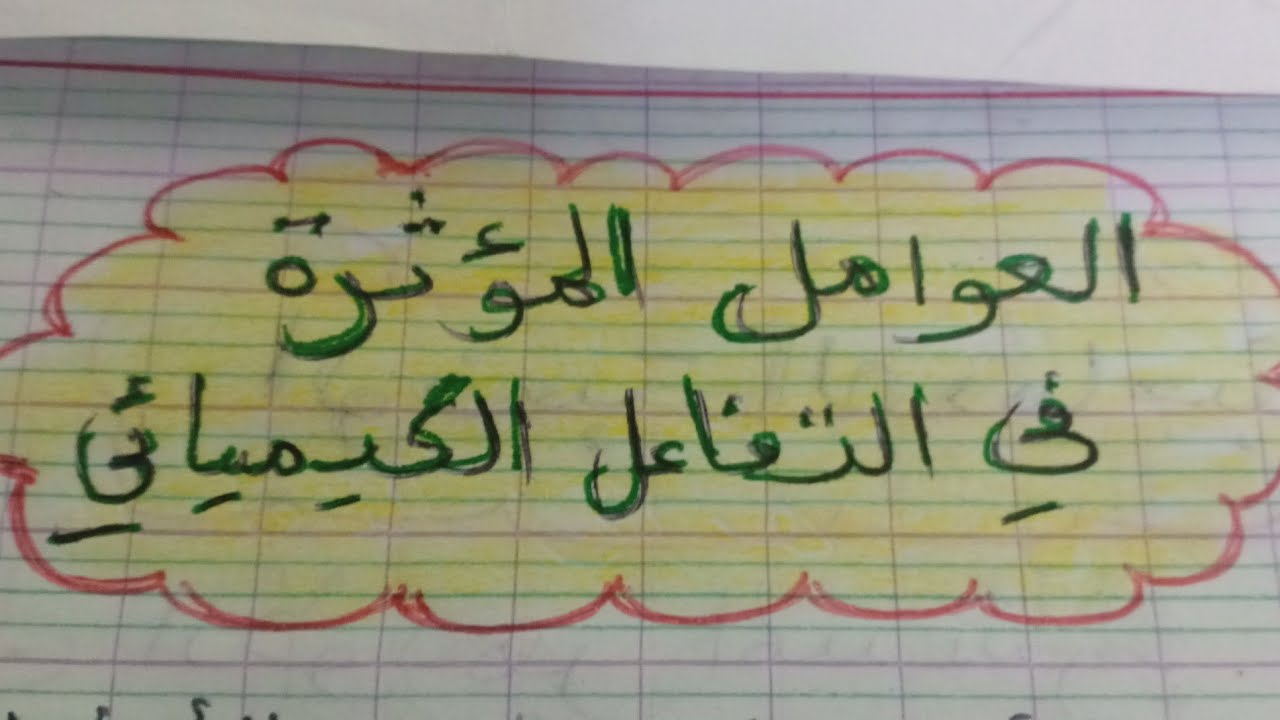 العوامل المؤثرة
في التفاعل الكيميائي